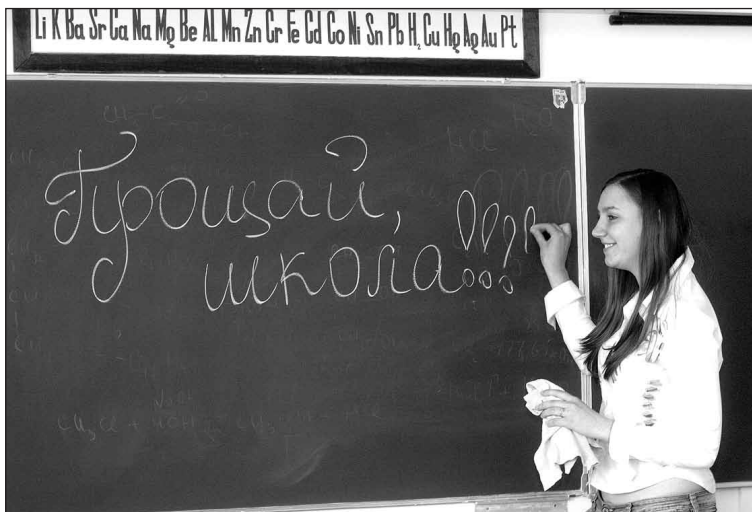 Li K Ba Sr Ca Na Mg Be Al Mn Zn Cr Fe Cd Co Ni Sn Pb H₂ Cu Hg Ag Au Pt
Прощай,
школа!!!!
HCl